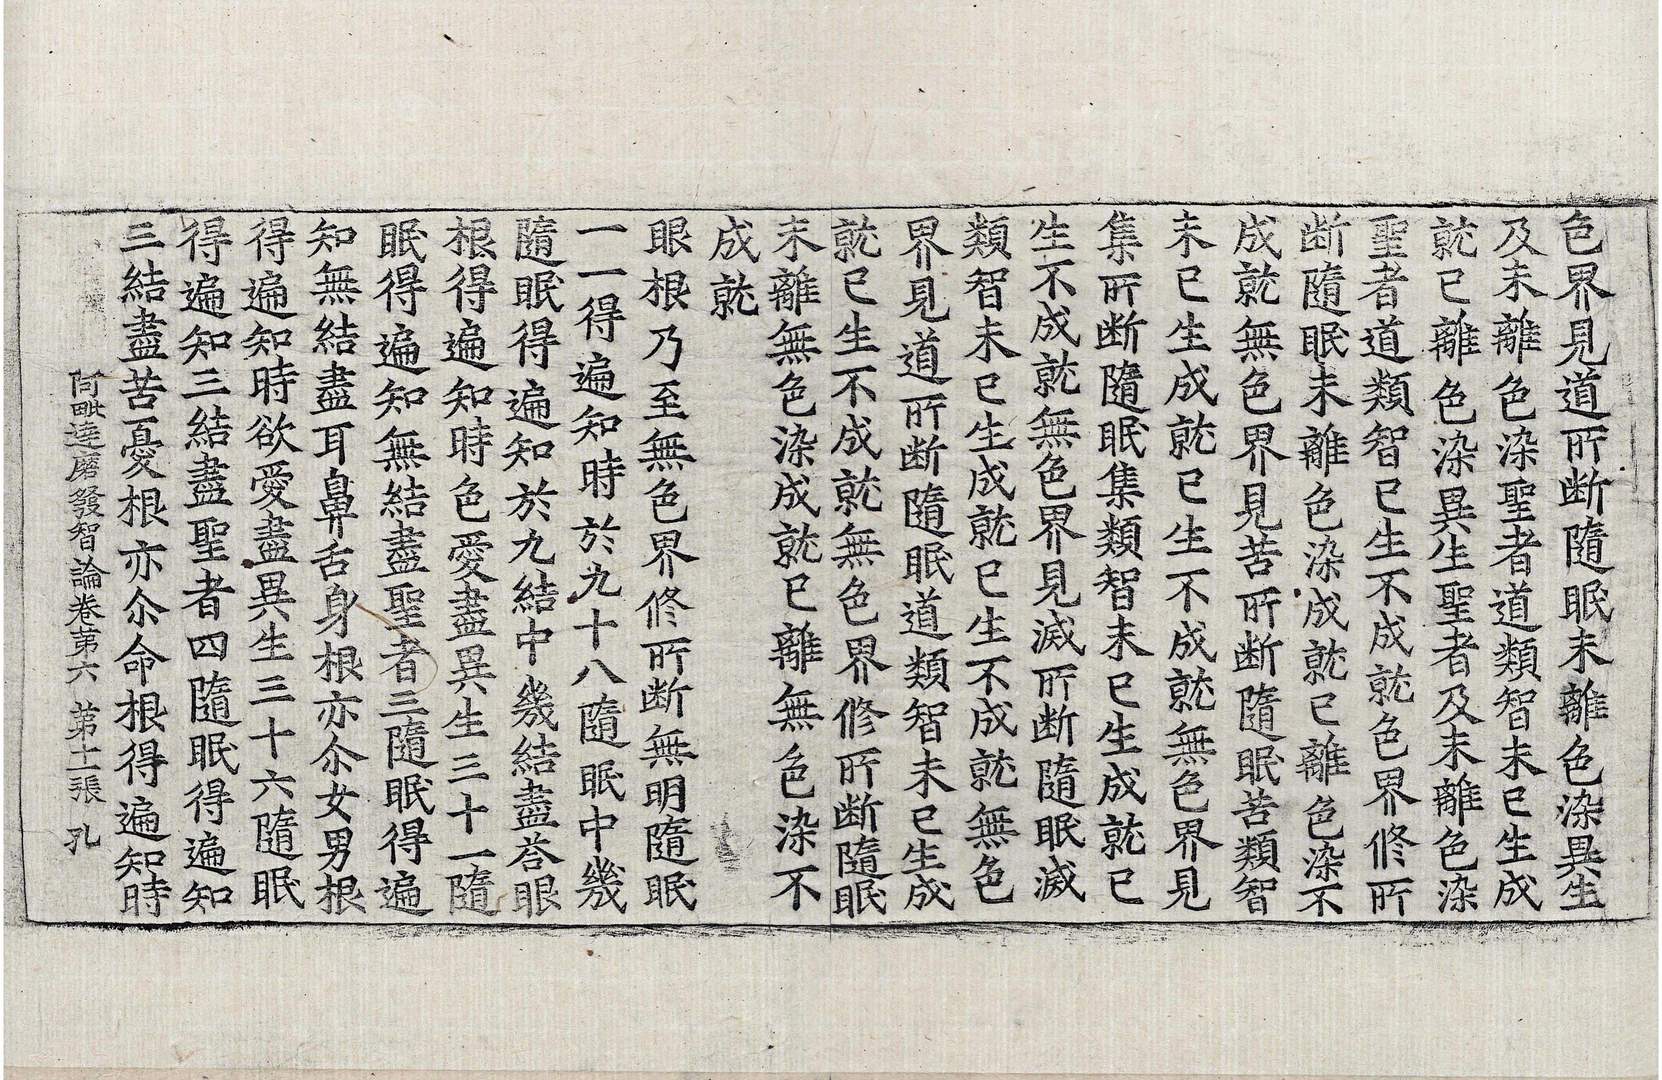 色界見道所断隨眠未離色染異生
及未離色染聖者道類智未已生成
就已離色染異生聖者及未離色染
聖者道類智已生不成就色界修所
断隨眠未離色染成就已離色染不
成就無色界見苦所断隨眠苦類智
未已生成就已生不成就無色界見
集所断隨眠集類智未已生成就已
生不成就無色界見滅所断隨眠滅
類智未已生成就已生不成就無色
界見道所断隨眠道類智未已生成
就已生不成就無色界修所断隨眠
未離無色染成就已離無色染不
成就
眼根乃至無色界修所断無明隨眠
一一得遍知時於九十八隨眠中幾
隨眠得遍知於九結中幾結盡荅眼
根得遍知時色愛盡異生三十一隨
眠得遍知無結盡聖者三隨眠得遍
知無結盡耳鼻舌身根亦尒女男根
得遍知時欲愛盡異生三十六隨眠
得遍知三結盡聖者四隨眠得遍知
三結盡苦憂根亦尒命根得遍知時
阿毗達磨發智論卷第六 第十二張 孔